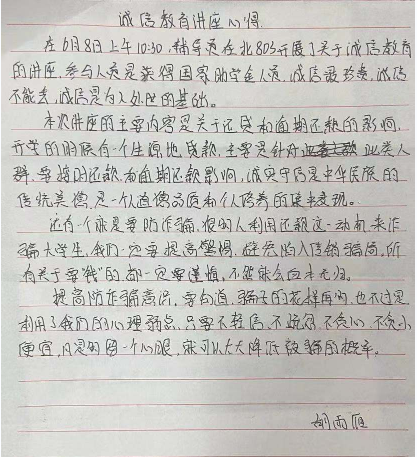 诚信教育讲座心得
在6月8日上午10:30,辅导员在北805开展了关于诚信教育
的讲座,参与人员是获得国家助学金人员,诚信最珍贵,诚信
不能丢,诚信是为人处世的基础。
本次讲座的主要内容是关于还贷和逾期还款的影响,
开学的时候有一个生源地贷款,主要是针对此类人
群,要按时还款和逾期还款影响,诚实守信是中华民族的
传统美德,是一个人道德品质和个人修养的集中表现。
还有一个就是要防诈骗,很多人利用还款这一动机来诈
骗大学生,我们一定要提高警惕,避免陷入传销骗局,所
有关于要“钱”的都一定要谨慎,不然就会血本无归。
提高防诈骗意识,要知道,骗子的花样再多,也不过是
利用了我们的心理弱点,只要不轻信,不疏忽,不贪心,不贪小
便宜,凡是多留一个心眼,就可以大大降低被骗的概率。
胡雨雁